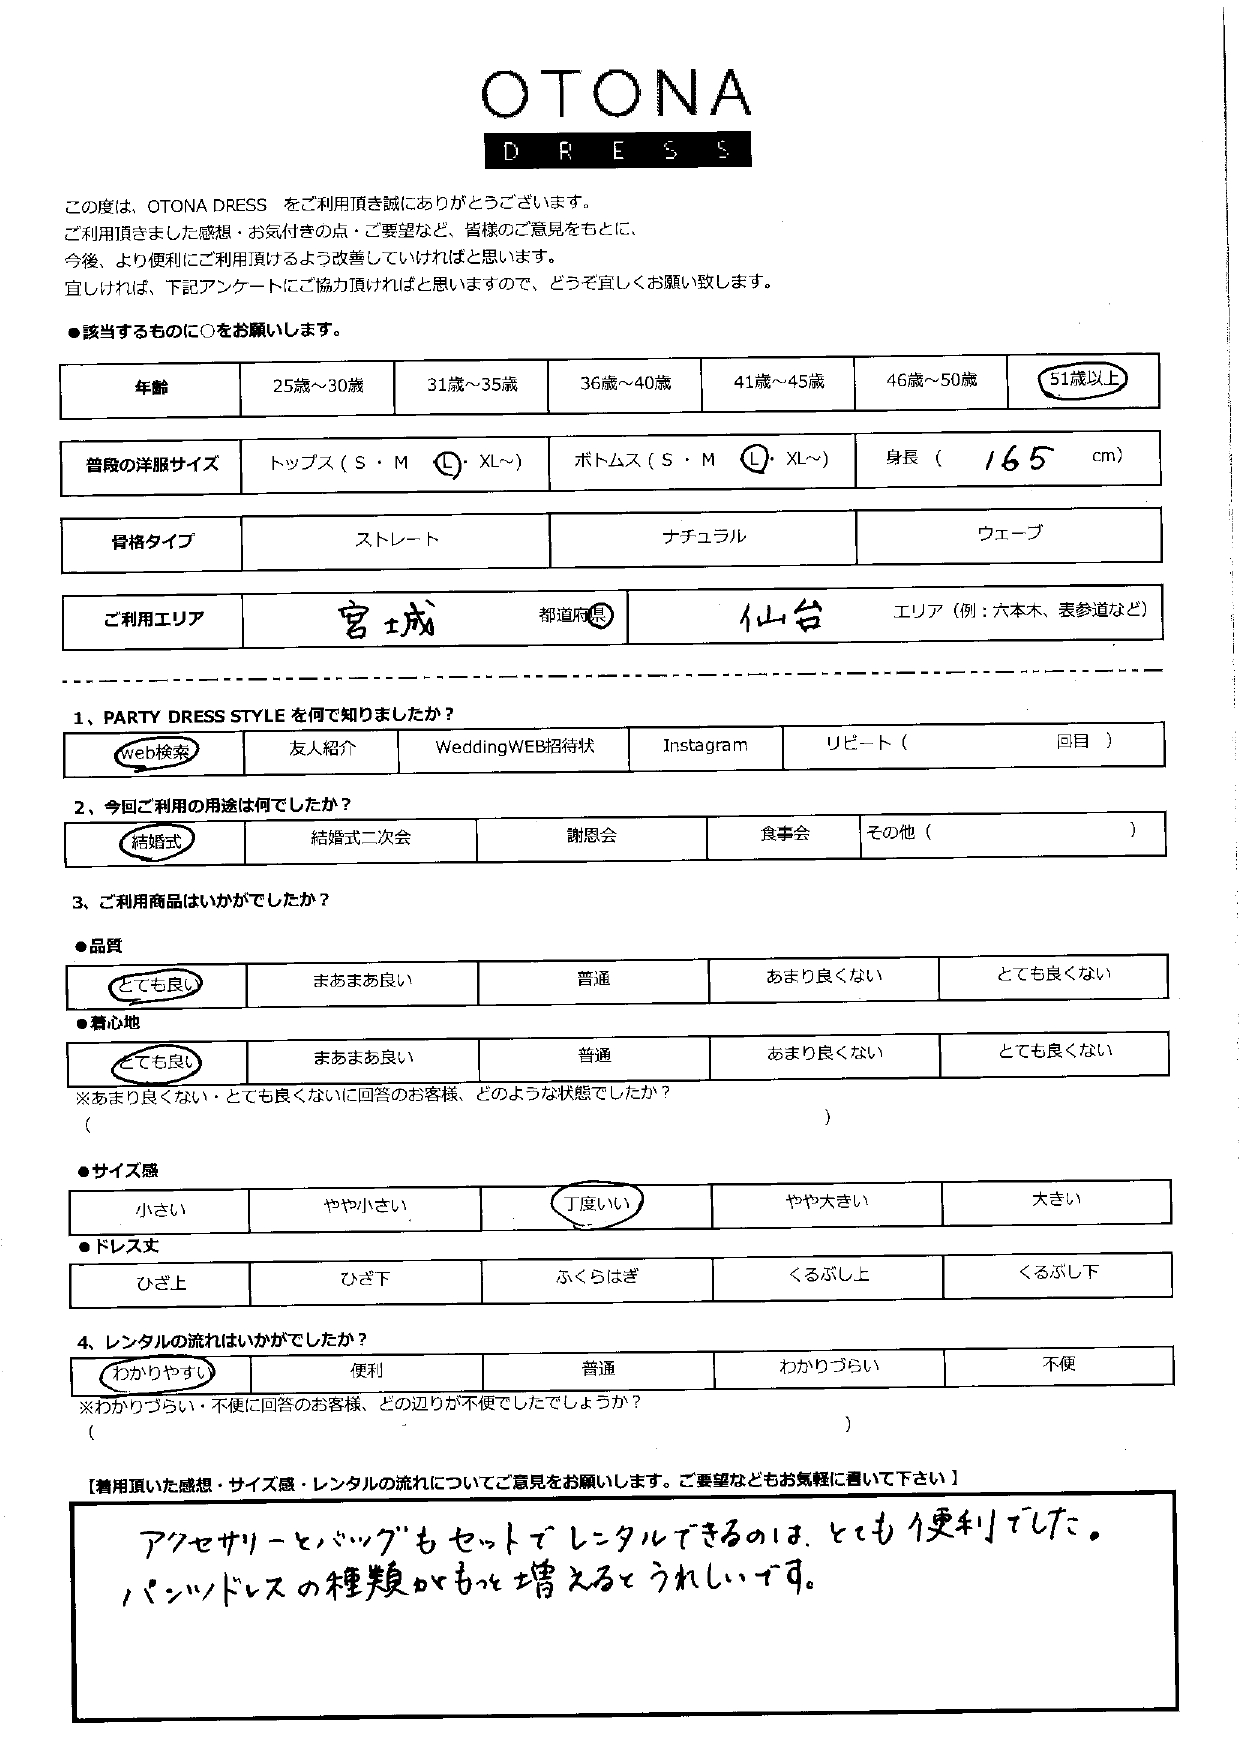 OTONA
DRESS
この度は、OTONA DRESS をご利用頂き誠にありがとうございます。
ご利用頂きました感想・お気付きの点・ご要望など、皆様のご意見をもとに、
今後、より便利にご利用頂けるよう改善していければと思います。
宜しければ、下記アンケートにご協力頂ければと思いますので、どうぞ宜しくお願い致します。
●該当するものに○をお願いします。
年齢 25歳～30歳 31歳～35歳 36歳～40歳 41歳～45歳 46歳～50歳 51歳以上
普段の洋服サイズ トップス ( S ・ M L・ XL～) ボトムス ( S ・ M L・ XL～) 身長 ( 165 cm)
骨格タイプ ストレート ナチュラル ウェーブ
ご利用エリア 宮城 都道府県 仙台 エリア（例：六本木、表参道など）
1、PARTY DRESS STYLE を何で知りましたか？
web検索 友人紹介 WeddingWEB招待状 Instagram リピート（ 回目 ）
2、今回ご利用の用途は何でしたか？
結婚式 結婚式二次会 謝恩会 食事会 その他（ ）
3、ご利用商品はいかがでしたか？
●品質
とても良い まあまあ良い 普通 あまり良くない とても良くない
●着心地
とても良い まあまあ良い 普通 あまり良くない とても良くない
※あまり良くない・とても良くないに回答のお客様、どのような状態でしたか？
（ ）
●サイズ感
小さい やや小さい 丁度いい やや大きい 大きい
●ドレス丈
ひざ上 ひざ下 ふくらはぎ くるぶし上 くるぶし下
4、レンタルの流れはいかがでしたか？
わかりやすい 便利 普通 わかりづらい 不便
※わかりづらい・不便に回答のお客様、どの辺りが不便でしたでしょうか？
（ ）
【着用頂いた感想・サイズ感・レンタルの流れについてご意見をお願いします。ご要望などもお気軽に書いて下さい 】
アクセサリーとバッグもセットでレンタルできるのは、とても便利でした。
パンツドレスの種類がもっと増えるとうれしいです。